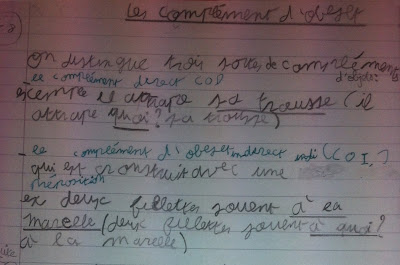 les complément d'obeset
on distingue trois sortes de complément
d'objets
le complément direct COD
exemple il attrape sa trousse (il
attrape quoi? sa trousse)
- le complément d'obeset indirect (COI,)
qui est construit avec une
préposition
ex deux fillettes souent à la
marelle (deux fillettes souent à quoi?
à la marelle)